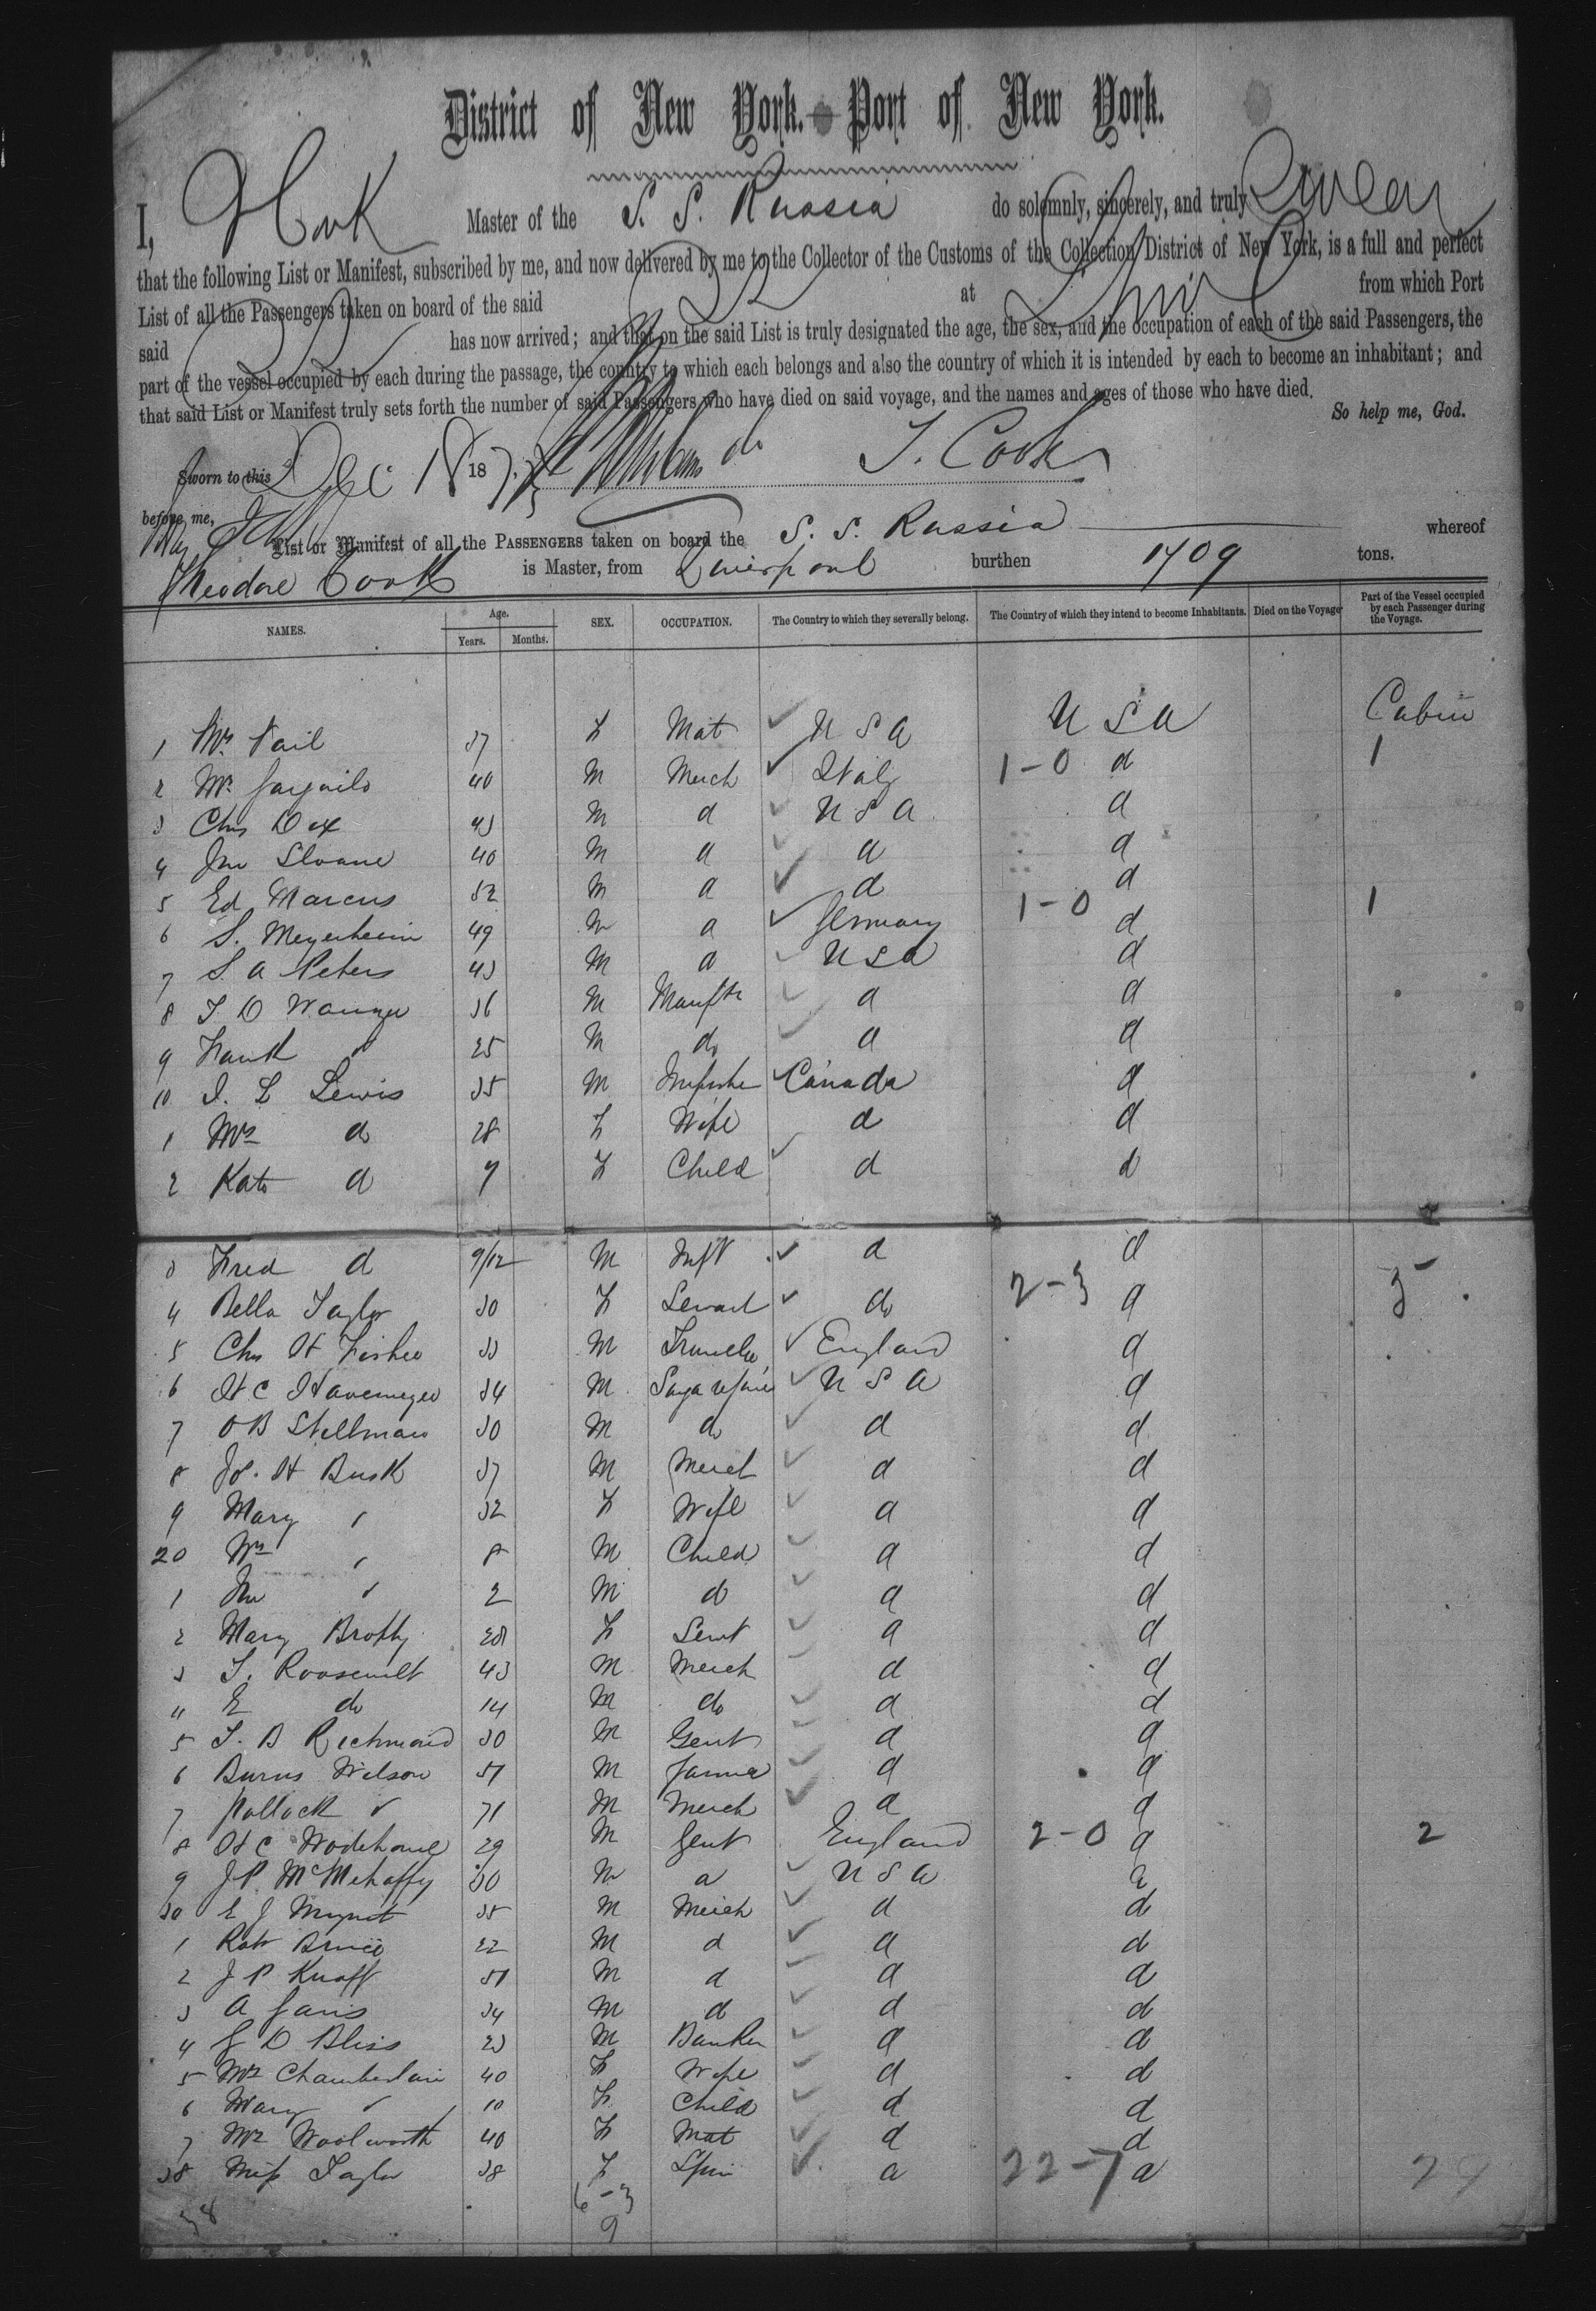 District of New York. Port of New York.
I, T Cook Master of the S. S. Russia do solemnly, sincerely, and truly Swear
that the following List or Manifest, subscribed by me, and now delivered by me to the Collector of the Customs of the Collection District of New York, is a full and perfect
List of all the Passengers taken on board of the said at from which Port
said has now arrived; and that on the said List is truly designated the age, the sex, and the occupation of each of the said Passengers, the
part of the vessel occupied by each during the passage, the country to which each belongs and also the country of which it is intended by each to become an inhabitant; and
that said List or Manifest truly sets forth the number of said Passengers who have died on said voyage, and the names and ages of those who have died.
So help me, God.
Sworn to this Dec 18 187 T. Cook
before me,
List or Manifest of all the PASSENGERS taken on board the S. S. Russia whereof
Theodore Cook is Master, from Liverpool burthen 1709 tons.
NAMES. Age. Years. Months. SEX. OCCUPATION. The Country to which they severally belong. The Country of which they intend to become Inhabitants. Died on the Voyage Part of the Vessel occupied by each Passenger during the Voyage.
1 Mrs Vail 37 F Mat U S A U S A Cabin
2 Mr 40 M Merch Italy 1-0 d 1
3 Chs Dex 43 M d U S A d
4 Jno Sloane 40 M d d d
5 Ed Marcus 52 M d d d
6 S. Meyerheim 49 M d Germany 1-0 d 1
7 S. A Peters 43 M d U S A d
8 T. D 36 M Manftr d d
9 Frank " 25 M do d d
10 I. L Lewis 35 M Canada d
1 Mrs do 28 F Wife d d
2 Kate d 7 F Child d d
3 Fred d 9/12 M Inft d d
4 Bella Taylor 30 F Servant do 2-3 d 5
5 Chs H Fisher 33 M England d
6 H C Havemeyer 34 M U S A d
7 O B Stillman 30 M do d d
8 Jos. H Busk 37 M Merct d d
9 Mary " 32 F Wife d d
20 Wm " 8 M Child d d
1 Jno " 2 M do d d
2 Mary Brophy 28 F Servt d d
3 T. Roosevelt 43 M Merch d d
4 E do 14 M do d d
5 T. B Richmond 30 M Gent d d
6 Burns Wilson 51 M Farmer d d
7 Pollock " 71 M Merch d d
8 H C Wodehouse 29 M Gent England 2-0 d 2
9 J P. McMehaffy 30 M d U S A d
30 E J 35 M Merch d d
1 Robt Bruce 22 M d d d
2 J P Knapp 51 M d d d
3 A 34 M d d d
4 G D Bliss 23 M Banker d d
5 Mrs Chamberlain 40 F Wife d d
6 Mary " 10 F Child d d
7 Mrs Woolworth 40 F Mat d d
38 Miss Taylor 38 F Spin d 22-7 d 29
38 6-3
9